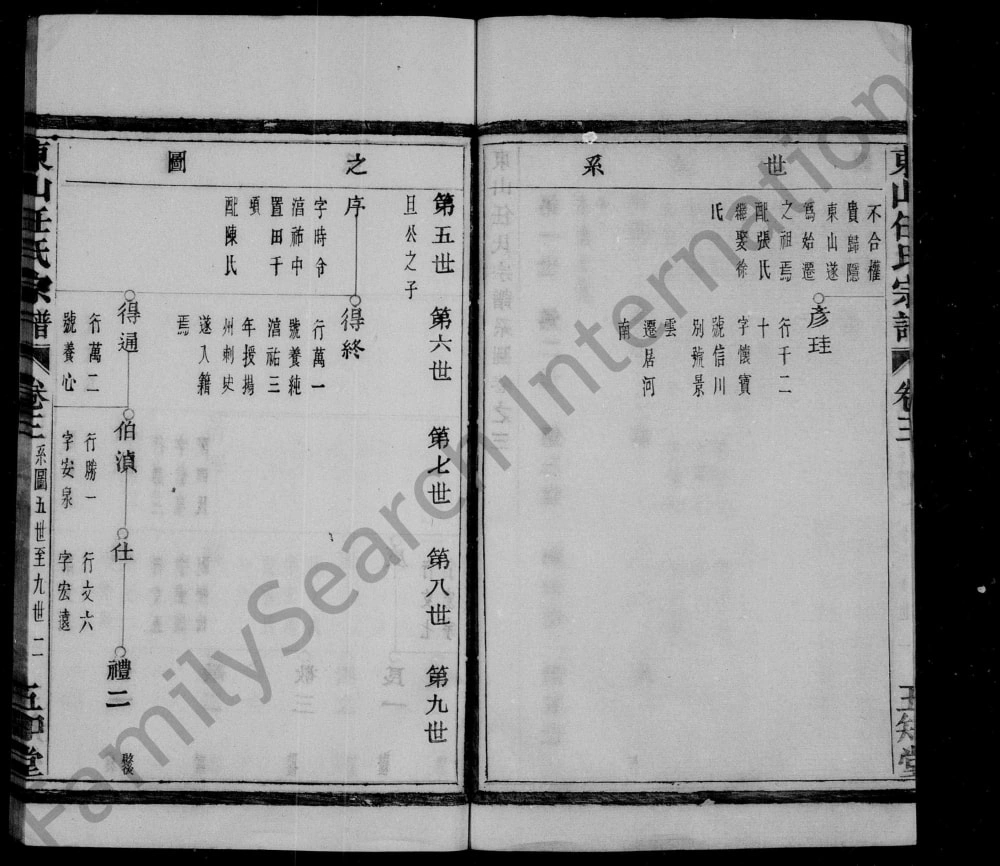 世系
不合權
貴歸隱
東山遂
爲始遷
之祖焉
配張氏
繼娶徐
氏
彥珪
行千二
十
字懷寶
號信川
別號景
雲
遷居河
南
東山任氏宗譜
卷三
五知堂
之圖
第五世
第六世
第七世
第八世
第九世
旦公之子
序
字時令
淯祐中
置田千
頃
配陳氏
得終
行萬一
號養純
淯祐三
年授揚
州刺史
遂入籍
焉
得通
行萬二
號養心
伯湞
行勝一
字安泉
仕
行文六
字宏遠
禮二
東山任氏宗譜
卷三
系圖五世至九世
二
五知堂
FamilySearch International